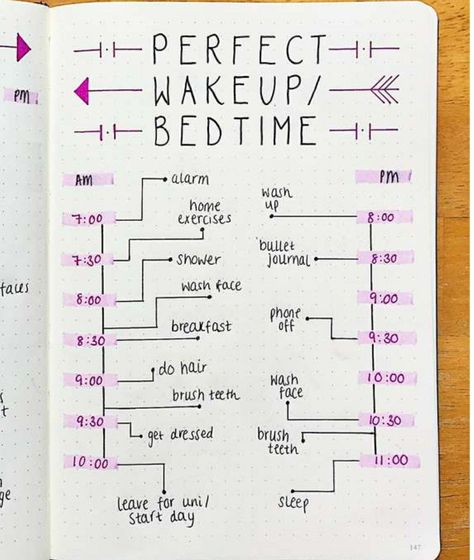 PERFECT
WAKEUP/
BEDTIME
PM
AM
alarm
7:00
home
exercises
7:30
shower
8:00
wash face
8:30
breakfast
9:00
do hair
brush teeth
9:30
get dressed
10:00
leave for uni/
start day
PM
wash
up
8:00
bullet
journal
8:30
9:00
phone
off
9:30
10:00
wash
face
10:30
brush
teeth
11:00
sleep
147